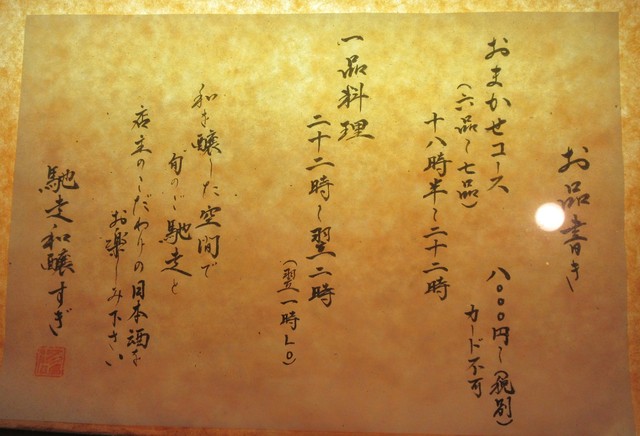 お品書き
おまかせコース 八〇〇〇円〜(税別)
(六品〜七品) カード不可
十八時半〜二十二時
一品料理
二十二時〜翌二時
(翌一時LO)
和を醸した空間で
旬のご馳走と
店主のこだわりの日本酒を
お楽しみ下さい
馳走和醸すぎ